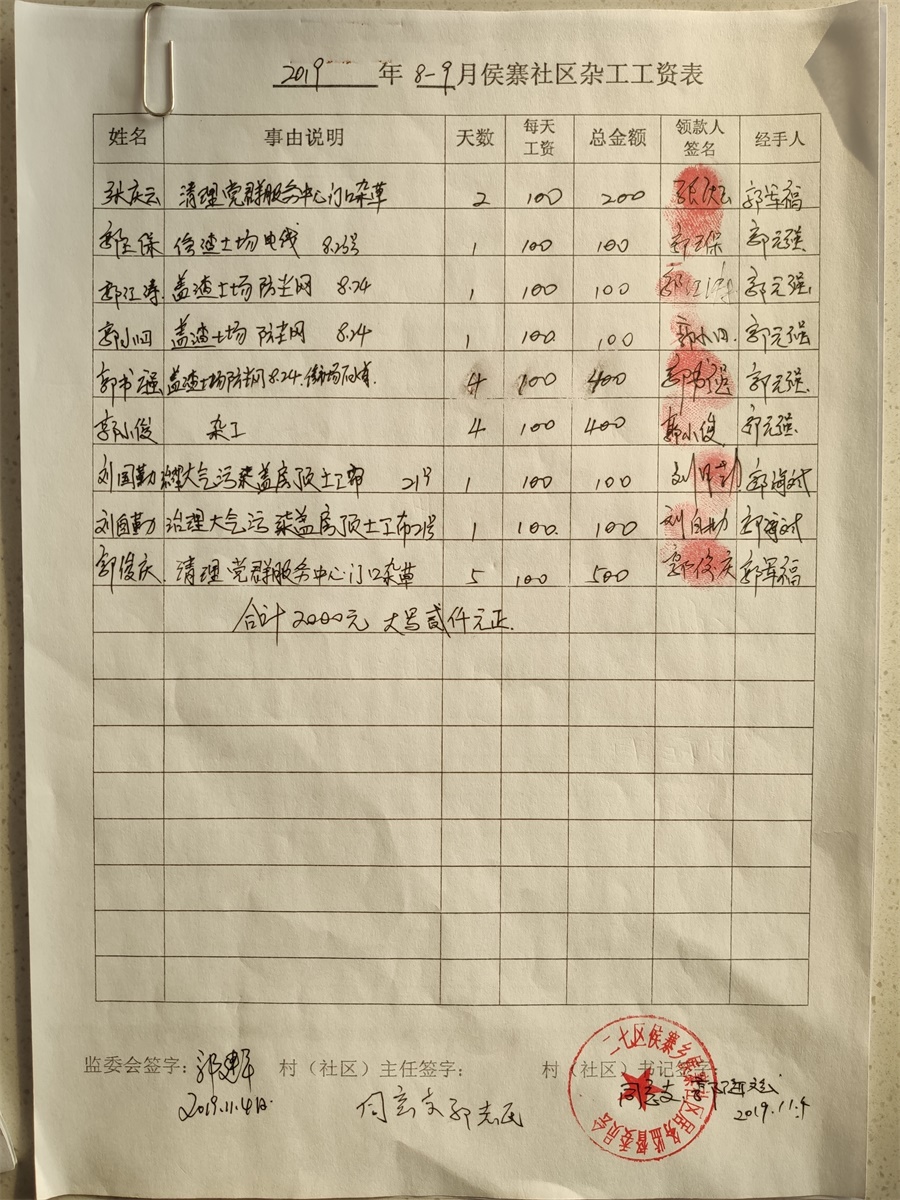 2019 年 8-9月侯寨社区杂工工资表
姓名 事由说明 天数 每天工资 总金额 领款人签名 经手人
张庆云 清理党群服务中心门口杂草 2 100 200 张庆云 郭军福
郭玉保 信渣土场电线 8.23号 1 100 100 郭玉保 郭元强
郭江涛 盖渣土场防尘网 8.24 1 100 100 郭江涛 郭元强
郭小四 盖渣土场防尘网 8.24 1 100. 100 郭小四. 郭元强
郭书强 盖渣土场防尘网8.24. 4 100 400 郭书强 郭元强
郭小俊 杂工 4 100 400 郭小俊 郭元强
刘国勤 大气污染盖房顶土工布 21号 1 100 100 刘国勤
刘国勤 治理大气污染盖房顶土工布21号 1 100. 100
郭俊庆. 清理党群服务中心门口杂草 5 100 500 郭俊庆 郭军福
合计2000元 大写贰仟元正.
监委会签字: 村（社区）主任签字: 村（社区）书记签字
2019.11.4日. 同意支 郭志民 同意支 2019.11.4
二七区侯寨乡侯寨社区居务监督委员会